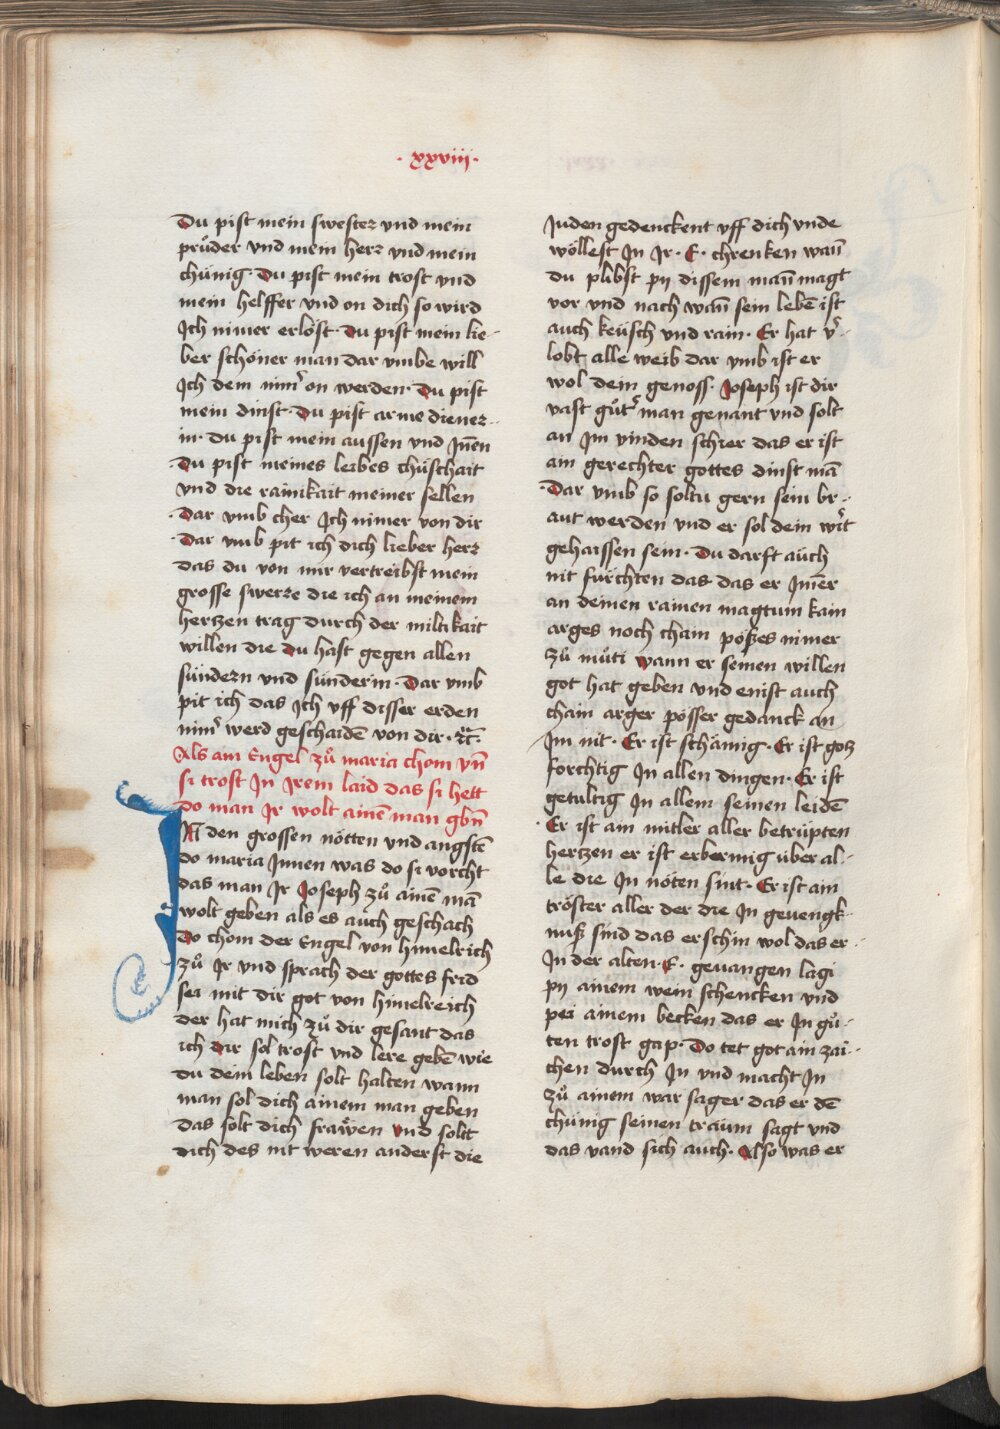 · xxviii ·
Du pist mein swester vnd mein
průder vnd mein herr vnd mein
chünig · Du pist mein trost vnd
mein helffer vnd on dich so wird
Ich nimer erlöst · Du pist mein lie-
ber schöner man dar vmbe will
Ich dem nim̉ on werden · Du pist
mein dinst · Du pist arme diener-
in · du pist mein aussen vnd Jn̄en
Du pist meines leibes chüschait
vnd die rainikait meiner sellen
Dar vmb cher Ich nimer von dir
Dar vmb pit ich dich lieber herr
das du von mir vertreibst mein
grosse swerre die ich an meinem
hertzen trag durch der miltikait
willen die du hast gegen allen
sündern vnd sünderin · Dar vmb
pit ich das Ich vff disser erden
nim̉ werd geschaidē von dir · ꝛc̄ ·
Als ain Engel zů maria chom vn̄
si trost Jn Jrem laid das si hett
do man Jr wolt ainē man gbn̄
JN den grossen nötten vnd angstē
do maria Jnnen was do si vorcht
das man Jr Joseph zů ainē mā
wolt geben als es auch geschach
Do chom der Engel von himelrich
zů Jr vnd sprach der gottes frid
sei mit dir got von himelreich
der hat mich zů dir gesant das
ich dir sol trost vnd lere gebē wie
du dein leben solt halten wann
man sol dich ainem man geben
das solt dich frawen vnd solt
dich des nit weren anderst die
Juden gedenckent vff dich vnde
wöllest Jn Jr · E · chrenken wan̄
du plibst py dissem man̄ magt
vor vnd nach wan̄ sein lebē ist
auch keüsch vnd rain · Er hat v̉-
lobt alle weib dar vmb ist er
wol dem genoss · Joseph ist dir
vast gůt̉ man genant vnd solt
an Jm vinden schier das er ist
ain gerechter gottes dinst mā
Dar vmb so soltu gern sein br-
aut werden vnd er sol dein wỉt
gehaissen sein · Du darft auch
nit fürchten das das er Jm̄er
an deinen rainen magtum kain
arges noch cham pößes nimer
zů můti wann er seinen willen
got hat geben vnd enist auch
chain arger pösser gedanck an
Jm nit · Er ist schämig · Er ist gotz
forchtig Jn allen dingen · Er ist
getultig Jn allem seinen leidē
Er ist am mitler aller betrüpten
hertzen er ist erbermig über al-
le die Jn nöten sint · Er ist ain
tröster aller der die Jn geuengk-
nuß sind das erschin wol das er-
Jn der alten · E · geuangen lägi
py ainem wein schencken vnd
pei ainem becken das er Jn gů-
ten trost gap · Do tet got ain zai-
chen durch Jn vnd macht Jn
zů ainem war sager das er dē
chünig seinen traum sagt vnd
das vand sich auch · Also was er